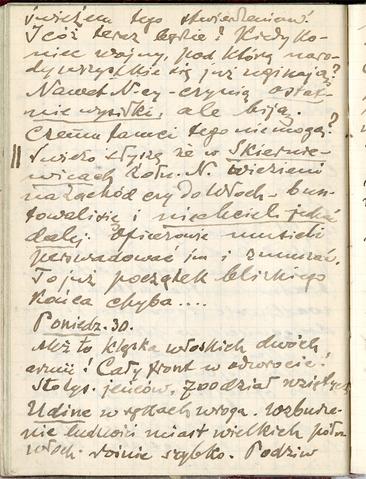 świętem tego stwierdzeniem.
I cóż teraz będzie? Kiedy ko-
niec wojny, pod którą naro-
dy wszystkie się już uginają?
Nawet N-cy - czynią ostat-
nie wysiłki, ale biją.
Czemu tamci tego nie mogą?
Świeżo słyszę że w Skiernie-
wicach żołn. N. wiezieni
na zachód czy do Włoch - bun-
towali się i nie chcieli jechać
dalej. Oficerowie musieli
perswadować im i zmuszać.
To już początek bliskiego
końca chyba....
Poniedz. 30.
Ależ to klęska włoskich dwóch
armii! Cały front w odwrocie!
Stotys. jeńców, 700 dział wziętych
Udine w rękach wroga. Wzburze-
nie ludności miast wielkich półn.
włoch. rośnie szybko. Podziw